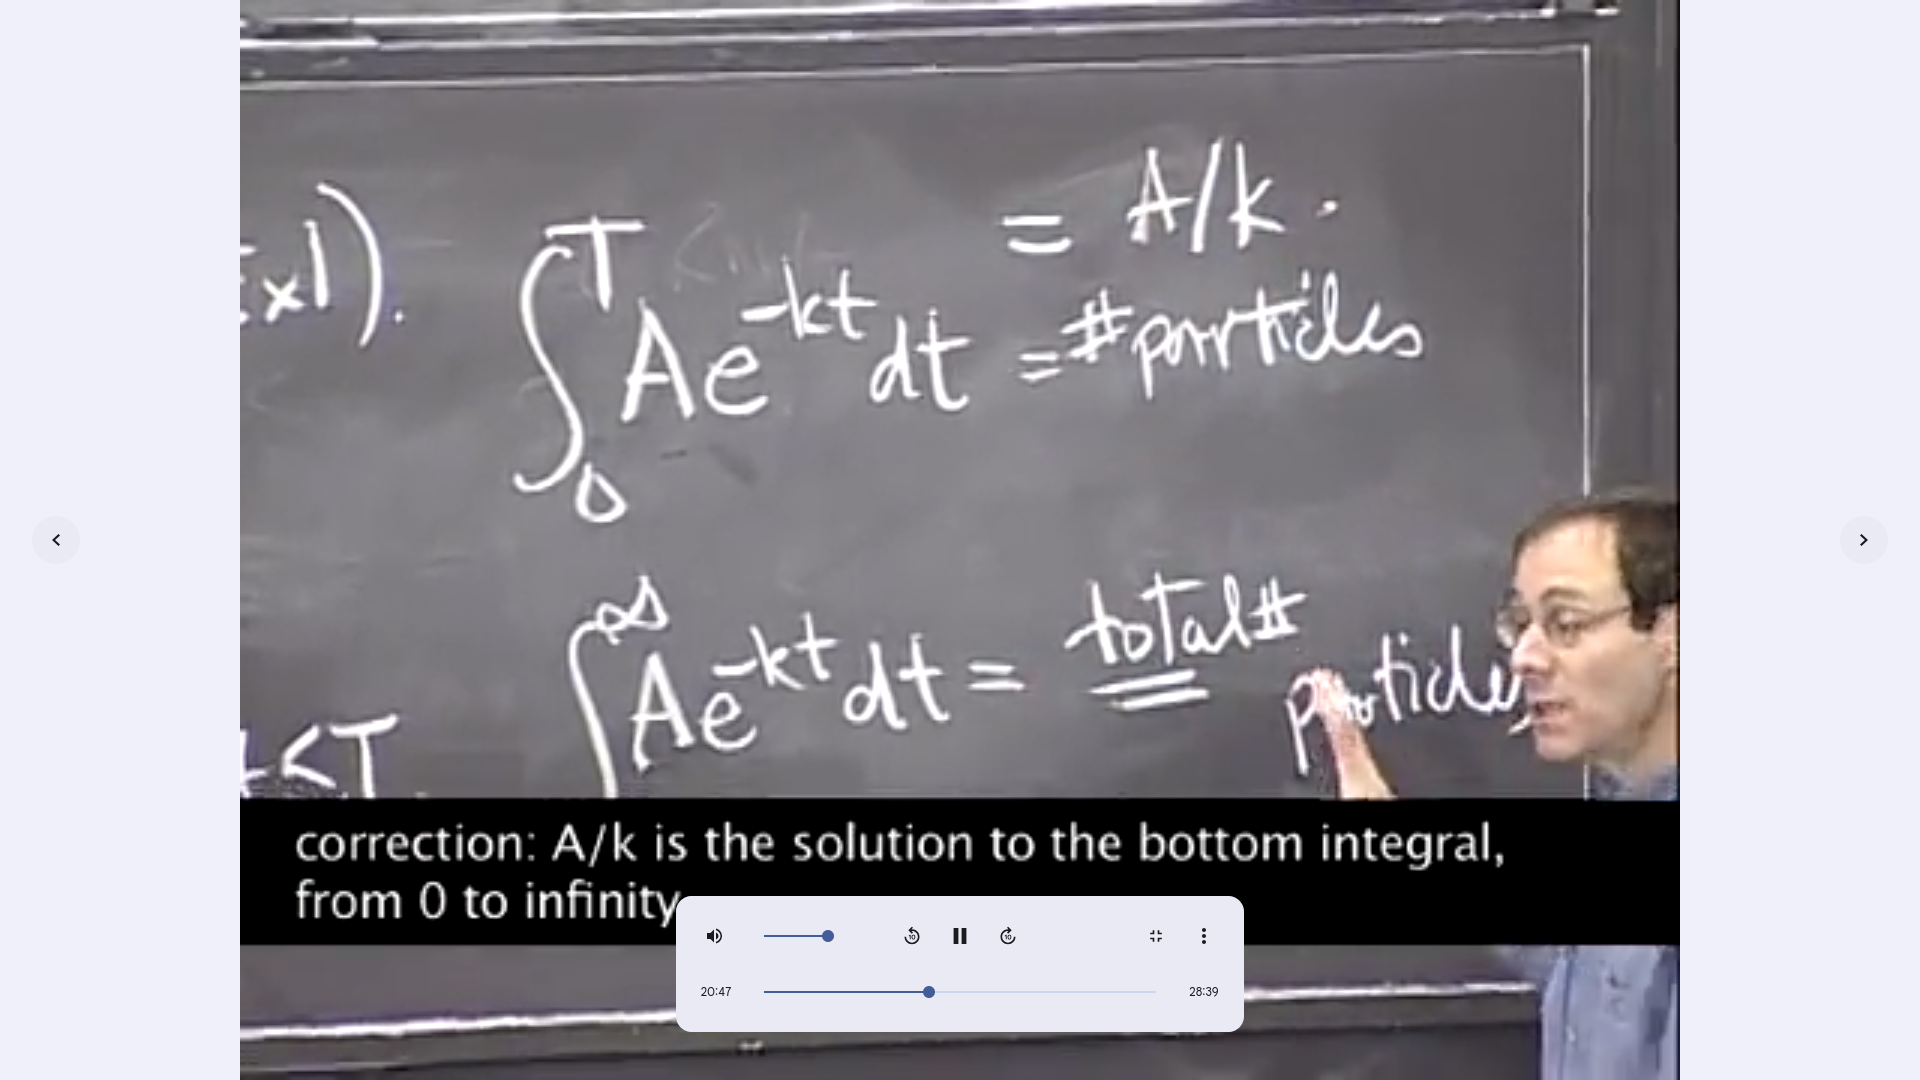 = A/k.
x1).
∫₀ᵀ Ae^-kt dt = #particles
∫^∞ Ae^-kt dt = total#
particles
<T
correction: A/k is the solution to the bottom integral,
from 0 to infinity
10
10
20:47
28:39